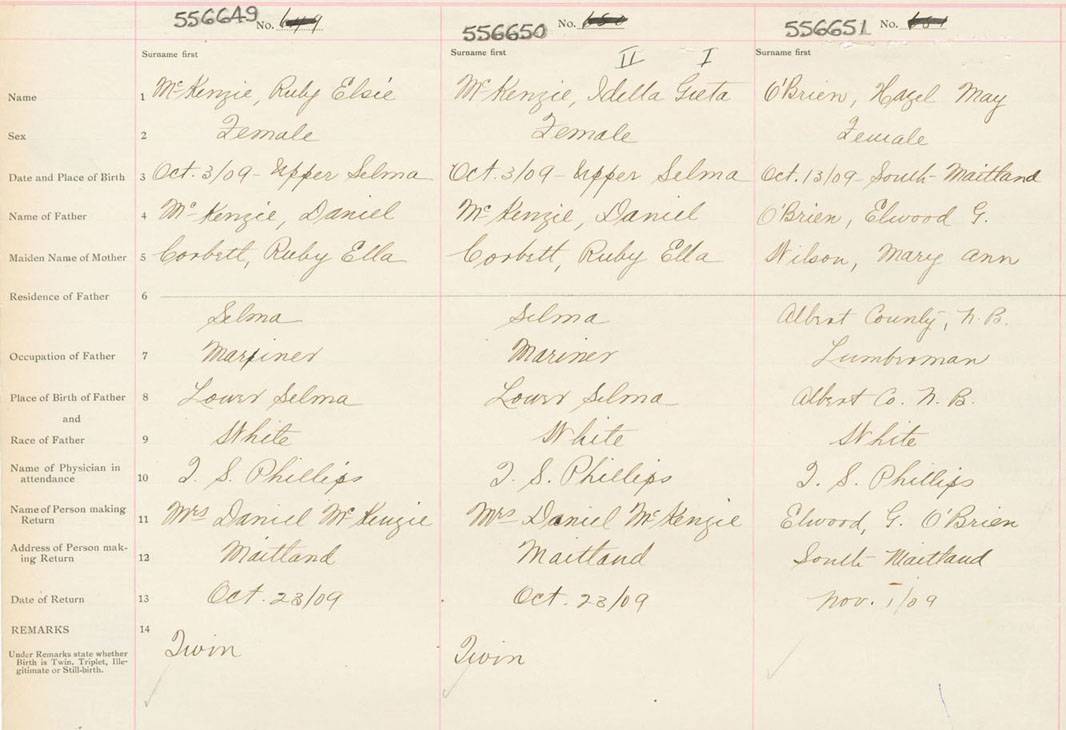 556649 No. 649 556650 No. 650 556651 No. 651
Surname first Surname first II I Surname first
Name 1 McKenzie, Ruby Elsie McKenzie, Idella Greta O'Brien, Hazel May
Sex 2 Female Female Female
Date and Place of Birth 3 Oct. 3/09 - Upper Selma Oct. 3/09 - Upper Selma Oct. 13/09 - South Maitland
Name of Father 4 McKenzie, Daniel McKenzie, Daniel O'Brien, Elwood G.
Maiden Name of Mother 5 Corbett, Ruby Ella Corbett, Ruby Ella Wilson, Mary Ann
Residence of Father 6
Selma Selma Albert County, N.B.
Occupation of Father 7 Mariner Mariner Lumberman
Place of Birth of Father 8 Lower Selma Lower Selma Albert Co. N.B.
and
Race of Father 9 White White White
Name of Physician in
attendance 10 T. S. Phillips T. S. Phillips T. S. Phillips
Name of Person making
Return 11 Mrs Daniel McKenzie Mrs Daniel McKenzie Elwood, G. O'Brien
Address of Person mak-
ing Return 12 Maitland Maitland South Maitland
Date of Return 13 Oct. 23/09 Oct. 23/09 Nov. 1/09
REMARKS 14
Under Remarks state whether
Birth is Twin, Triplet, Ille-
gitimate or Still-birth.
Twin Twin